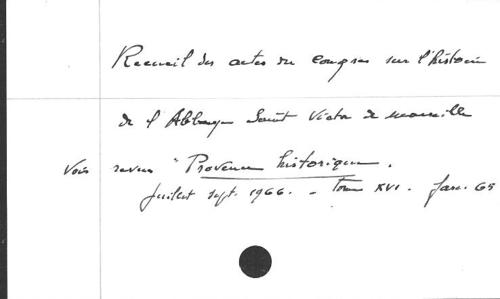 Recueil des actes du Congres sur l'histoire
de l'Abbaye Saint Victor de Marseille
Voir revue "Provence historique.
Juillet sept. 1966. - Tome XVI. fasc. 65